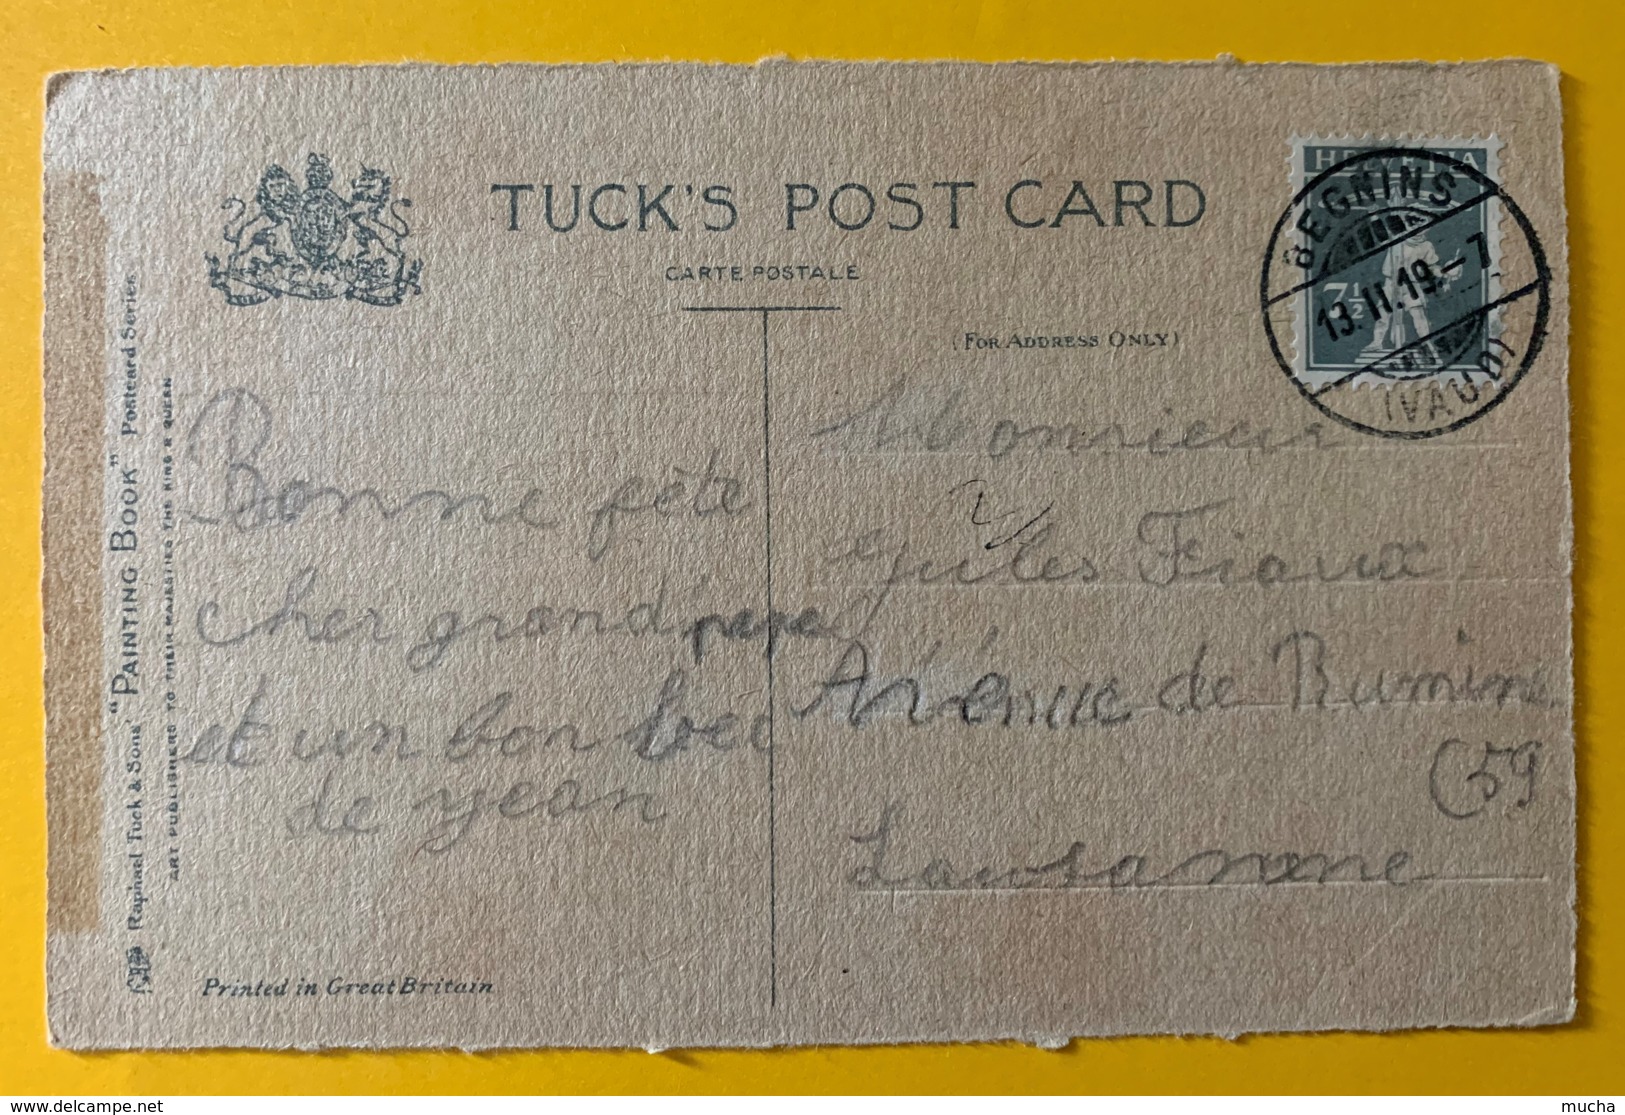 TUCK'S POST CARD
CARTE POSTALE
(FOR ADDRESS ONLY)
HELVETIA
7½
BEGNINS
13.II.19.-7
(VAUD)
Bonne fête
cher grand'père
et un bon
de Jean
Monsieur
Jules Fiaux
Avenue de Rumine
(59
Lausanne
Raphael Tuck & Sons' "PAINTING BOOK" Postcard Series
ART PUBLISHERS TO THEIR MAJESTIES THE KING & QUEEN
Printed in Great Britain
delcampe.net
mucha